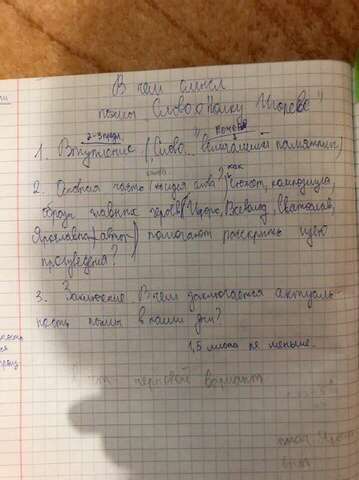 В чем смысл
поэмы "Слово о полку Игореве"
2-3 предл. почему
1. Вступление ("Слово..." величайший памятник)
как
2. Основная часть слова? Сюжет, композиция,
образы главных героев (Игоря, Всеволод, Святослав,
Ярославна, автор) помогают раскрыть идею
произведения?
3. Заключение В чем заключается актуаль-
ность поэмы в наши дни?
1,5 листа не меньше.
черновой вариант